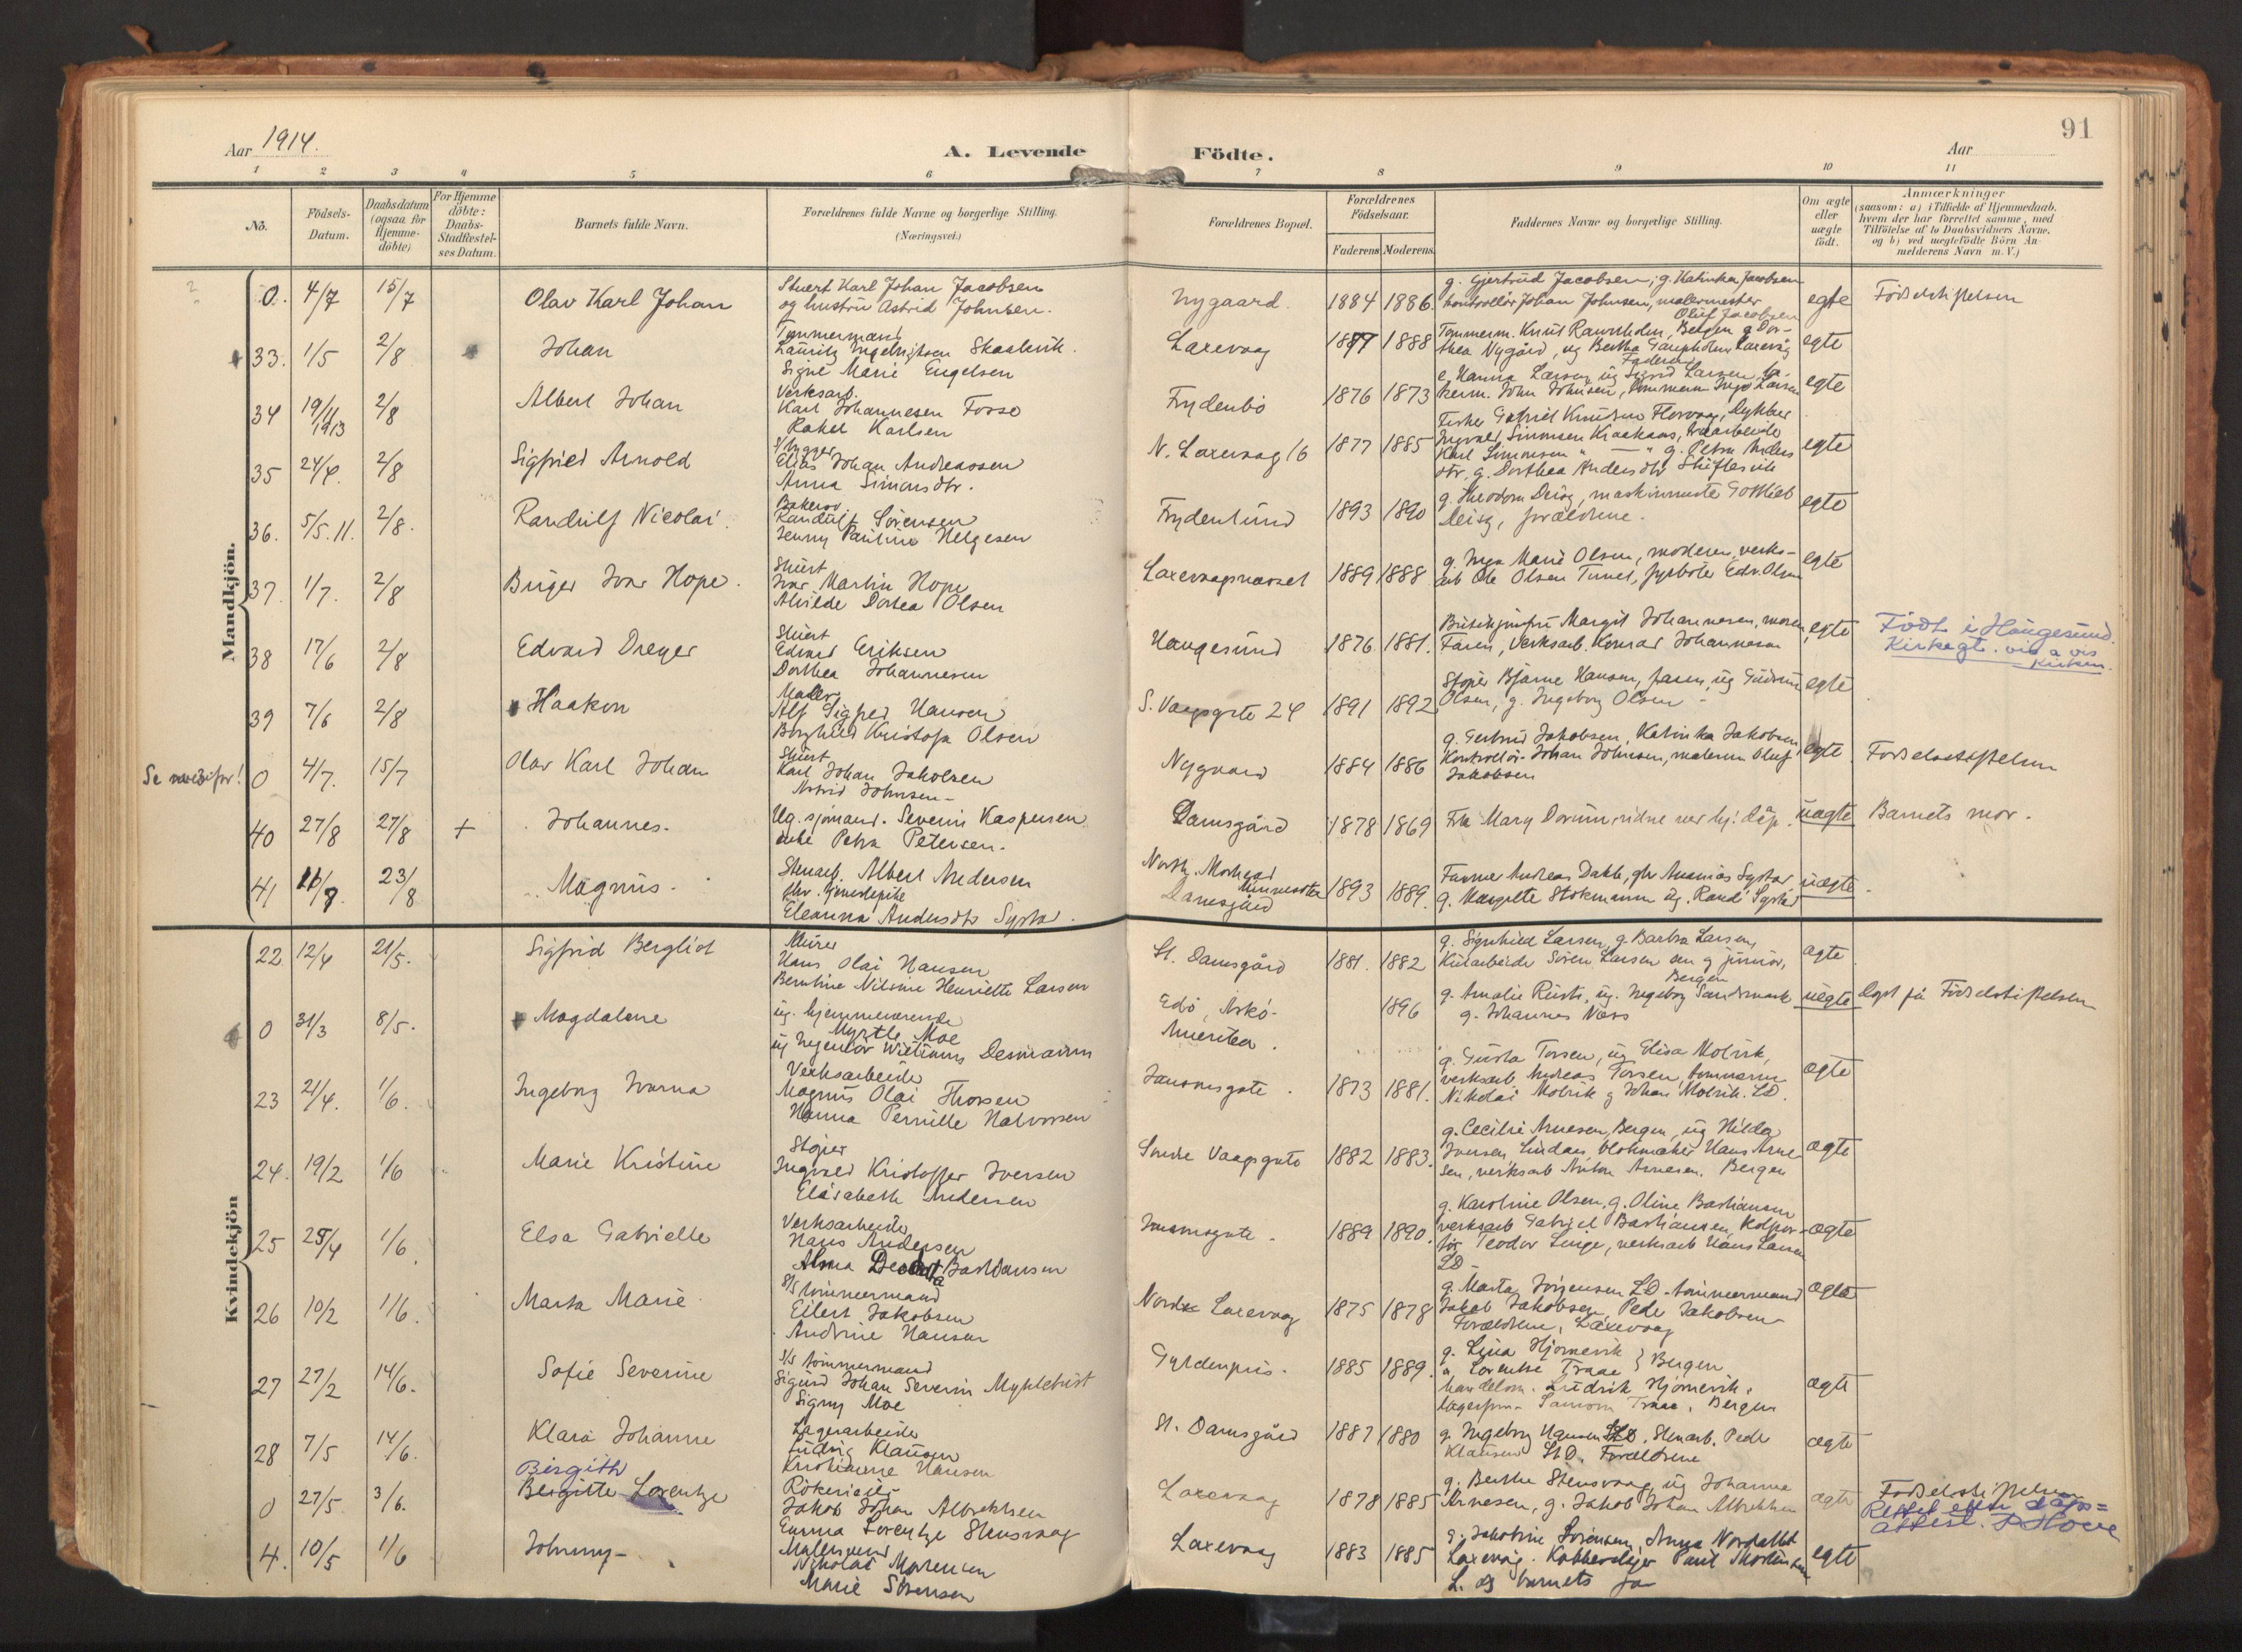 91
Aar 1914.
A. Levende Födte.
Aar
1 2 3 4 5 6 7 8 9 10 11
No.
Födsels-Datum.
Daabsdatum (ogsaa for Hjemme-döbte)
For Hjemme döbte: Daabs-Stadfæstel-ses Datum.
Barnets fulde Navn.
Forældrenes fulde Navne og borgerlige Stilling.
(Næringsvei.)
Forældrenes Bopæl.
Forældrenes Födselsaar.
Faderens Moderens
Faddernes Navne og borgerlige Stilling.
Om ægte eller uægte födt.
Anmærkninger
(saasom: a) i Tilfælde af Hjemmedaab, hvem der har forrettet samme, med Tilföielse af to Daabsvidners Navne, og b) ved uægtefödte Börn An-melderens Navn m. V.)
Mandkjön.
0. 4/7 15/7 Olav Karl Johan
Stuert Karl Johan Jacobsen
og hustru Astrid Johnsen.
Nygaard. 1884 1886.
g. Gjertrud Jacobsen, g. Katinka Jacobsen
kontrollör Johan Johnsen, malermester
Oluf Jacobsen
egte Födselstiftelsen
33. 1/5 2/8 Johan
Tömmermand
Lauritz Ingebrigtsen
Signe Marie Engelsen
Laxevaag 1888
Tömmerm. Knut Bergen g. Dor-
thea Nygård, ug Bertha Laxevåg
Faderen
egte
34 19/11 1913 2/8 Albert Johan
Verksarb.
Karl Johannesen Fosse
Rakel Karlsen
Frydenbö 1876 1873
e. Hanna Larsen ug Sigrid Larsen
John Johnsen, Larsen
egte
35 24/4. 2/8 Sigfried Arnold
Elias Johan Andreassen
Anna Simonsdtr.
N. Laxevaag 16 1877 1885
Fisker Gabriel Knudsen Florvaag, Dykker
Ingvald Simonsen
Karl Simonsen g. Petra Anders
dtr, g. Dorthea Andersdtr
egte
36. 5/5.11. 2/8. Randulf Nicolai.
Bakersv.
Randulf Sörensen
Jenny Pauline Helgesen
Frydenlund 1893 1890
g. Theodora Deisz, maskinmester Gottlieb
Deisz, forældrene.
egte
37. 1/7. 2/8 Birger Ivar Hope.
Stuert
Ivar Martin Hope
Alvilde Dortea Olsen
Laxevaagnæsset 1889 1888
g. Inga Marie Olsen, moderen, verks-
arb Ole Olsen Tunet, fyrböter Edv. Olsen
egte
38 17/6 2/8 Edvard Dreyer
Stuert
Edvard Eriksen
Dorthea Johannesen
Haugesund 1876 1881.
Butikjomfru Margit Johannesen, moren,
Faren, Verksarb. Konrad Johannesen
egte
Födt i Haugesund.
Kirkegt. vis a vis
kirken.
39 7/6 2/8 Haakon
Maler
Alf Sigfred Hansen
Borghild Kristofa Olsen
S. Vaagsgate 24 1891 1892
Stöper Bjarne Hansen, faren, ug Gudrun
Olsen, g. Ingeborg Olsen -
egte
Se ovenfor! 0 4/7. 15/7 Olav Karl Johan
Stuert
Karl Johan Jakobsen
Astrid Johnsen -
Nygaard 1884 1886
g. Gertrud Jakobsen, Katinka Jakobsen,
Kontrollör Johan Johnsen, malerm Oluf
Jakobsen
egte Födselsstiftelsen
40 27/8 27/8 + Johannes.
Ug. sjömand. Severin Kaspersen
enke Petra Petersen.
Damsgård 1878 1869
Frk Mary Dorum, vidne ved hj. dåp.
uægte Barnets mor.
41 16/7. 23/8 Magnus.
Stenarb. Albert Andersen
fhv. tjenestepike
Eleanna Andersdtr Systad.
North. Morhead
Minnesota
Damsgård 1893 1889.
Farmer Andreas Dahle, gbr Ananias Systad,
g. Margrete Stokmann ug. Randi Systad
uægte.
Kvindekjön
22 12/4 21/5. Sigfrid Bergliot
Murer
Hans Olai Hansen
Berntine Nilsine Henriette Larsen
St. Damsgård 1881. 1882
g. Signhild Larsen, g. Barbra Larsen,
Kularbeider Sören Larsen sen og junior,
Bergen
ægte
0 31/3 8/5. Magdalene
ug. hjemmeværende
Myrtle Moe
ug Ingeniör Williams Desmann
Edö, Askö-
Amerika. 1896
g. Amalie Rusti, ug. Ingeborg Sandsmark
g. Johannes Næss
uegte Dept på Födselstiftelsen
23 21/4. 1/6. Ingeborg Ivarna
Verksarbeider
Magnus Olai Thorsen
Hanna Pernille Halvorsen
Jansonsgate. 1873 1881.
g. Gusta Torsen, ug Elisa Molvik,
verksarb Andreas Torsen, tömmerm
Nikolai Molvik g Johan Molvik. LD.
ægte
24. 19/2 1/6 Marie Kristine
Stöper
Ingvald Kristoffer Iversen
Elisabeth Andersen
Söndre Vaagsgate 1882 1883.
g. Cecilie Arnesen, Bergen, ug Hilda
Iversen, Lindaas, blokmaker Hans Arne-
sen, verksarb Anton Arnesen. Bergen
ægte
25 25/4 1/6. Elsa Gabrielle
Verksarbeider
Hans Andersen
Alma Bastiansen
Jansonsgate. 1889 1890.
g. Karoline Olsen, g. Oline Bastiansen
verksarb Gabriel Bastiansen, Kolpor-
tör Teodor Lunge, verksarb Hans Larsen
LD -
ægte
26 10/2 1/6. Marta Marie
S/S tömmermand
Eilert Jakobsen
Andrine Hansen
Nordre Laxevaag 1875 1878
g. Marta Jörgensen LD. tömmermand
Jakob Jakobsen, Peder Jakobsen
Forældrene, Laxevaag
ægte
27 27/2 14/6. Sofie Severine
S/S tömmermand
Sigurd Johan Severin Myklebust
Signy Moe
Gyldenpris. 1885 1889.
g. Lina Hjörnevik
g. Lorentse Traae } Bergen
handelsm. Ludvik Hjörnevik,
lagerform Samson Traae, Bergen
ægte
28 7/5 14/6. Klara Johanne
Lagerarbeider
Ludvig Klausen
Hansen
St. Damsgård 1887 1880
g. Ingeborg Hansen St.D. Stenarb. Peder
Klausen St.D. Forældrene
ægte
0 27/5. 3/6. Birgith
Birgitte Lorentze
Rökerieier
Jakob Johan Albrektsen
Emma Lorentze Stensvaag
Laxevaag 1878 1885
g. Berthe Stensvaag, ug Johanna
Arnesen, g. Jakob Johan Albrektsen
ægte
Födselsstiftelsen
Rettet efter dåps=
attest.
4. 10/5 1/6 Johnny -
Malersvend
Nikolai Mortensen
Marie Sörensen
Laxevaag 1883 1885
g. Jakobine Sörensen, Anna
Laxevåg. Kobberslager Paul Mortensen
L. og barnets far
egte